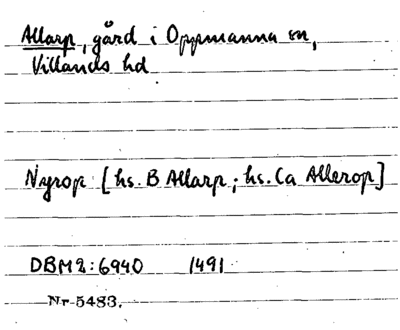 Allarp, gård i Oppmanna sn,
Villands hd
Nyrop [hs. B Allarp; hs. Ca Allerop]
DBM 2:6940 1491
Nr 5483.